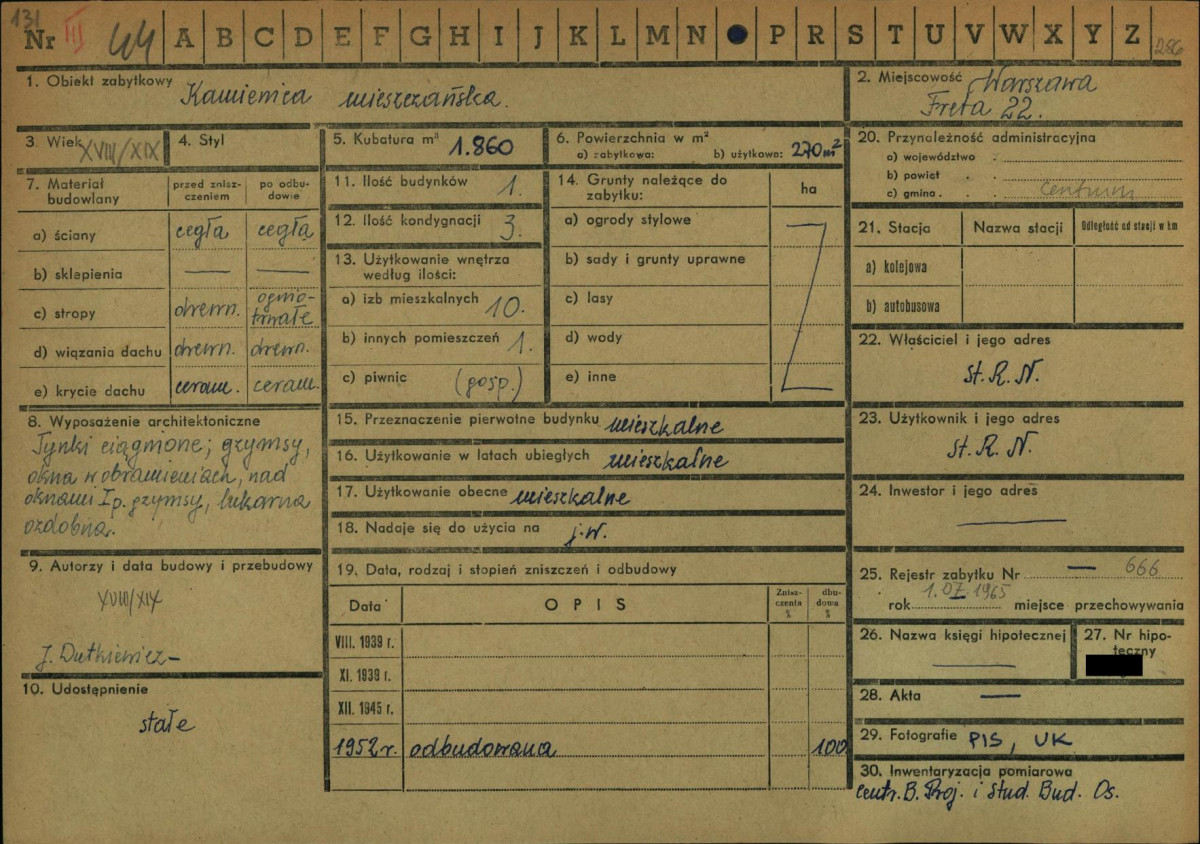 131
Nr III 44 A B C D E F G H I J K L M N P R S T U V W X Y Z 286
1. Obiekt zabytkowy Kamienica mieszczańska.
2. Miejscowość Warszawa
Freta 22.
3. Wiek XVIII/XIX
4. Styl
5. Kubatura m³ 1.860
6. Powierzchnia w m²
a) zabytkowa: b) użytkowa: 270 m²
7. Materiał budowlany
przed zniszczeniem
po odbudowie
a) ściany cegła cegła
b) sklepienia — —
c) stropy drewn. ogniotrwałe
d) wiązania dachu drewn. drewn.
e) krycie dachu ceram. ceram.
8. Wyposażenie architektoniczne
Tynki ciągnione; gzymsy,
okna w obramieniach, nad
oknami I p. gzymsy, lukarna
ozdobna.
9. Autorzy i data budowy i przebudowy
XVIII/XIX
J. Dutkiewicz —
10. Udostępnienie
stałe
11. Ilość budynków 1.
12. Ilość kondygnacji 3.
13. Użytkowanie wnętrza
według ilości:
a) izb mieszkalnych 10.
b) innych pomieszczeń 1.
c) piwnic (gosp.)
14. Grunty należące do
zabytku:
ha
a) ogrody stylowe
b) sady i grunty uprawne
c) lasy
d) wody
e) inne
15. Przeznaczenie pierwotne budynku mieszkalne
16. Użytkowanie w latach ubiegłych mieszkalne
17. Użytkowanie obecne mieszkalne
18. Nadaje się do użycia na j.w.
19. Data, rodzaj i stopień zniszczeń i odbudowy
Data OPIS Zniszczenia % dbudowa %
VIII. 1939 r.
XI. 1939 r.
XII. 1945 r.
1952 r. odbudowana 100
20. Przynależność administracyjna
a) województwo
b) powiat
c) gmina Centrum
21. Stacja Nazwa stacji Odległość od stacji w km
a) kolejowa
b) autobusowa
22. Właściciel i jego adres
St. R. N.
23. Użytkownik i jego adres
St. R. N.
24. Inwestor i jego adres
—
25. Rejestr zabytku Nr — 666
rok 1.07.1965 miejsce przechowywania
26. Nazwa księgi hipotecznej
—
27. Nr hipoteczny
28. Akta —
29. Fotografie PIS, UK
30. Inwentaryzacja pomiarowa
Centr. B. Proj. i Stud. Bud. Os.